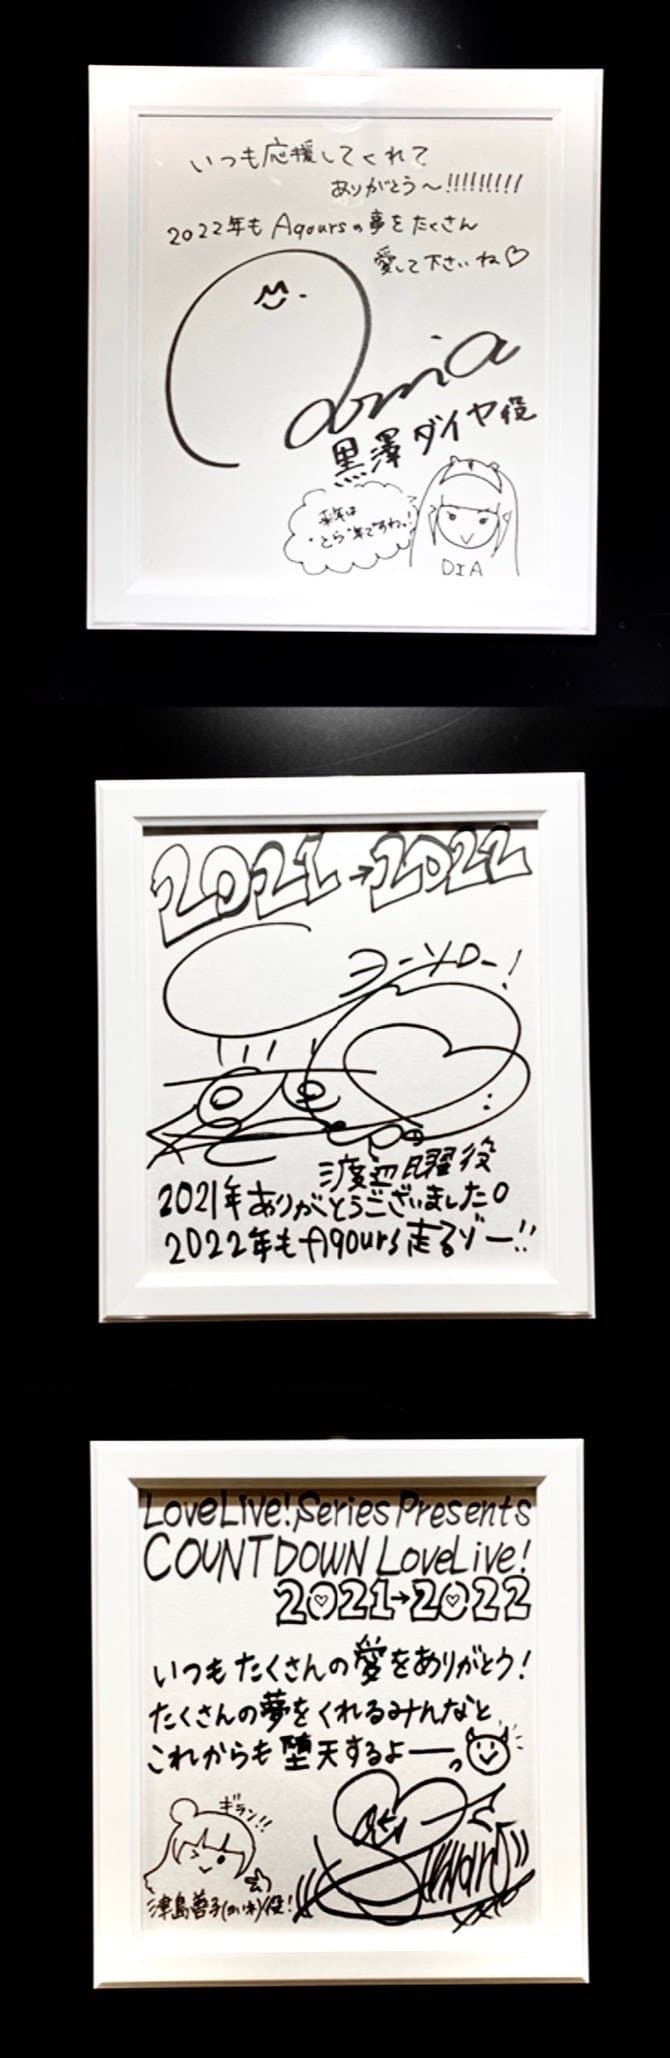 いつも応援してくれて
ありがとう〜!!!!!!!!!
2022年も Aqoursの夢をたくさん
愛して下さいね♡
黒澤ダイヤ役
来年は
"とら"年ですわっ!
DIA
2021→2022
ヨーソロー!
渡辺曜役
2021年ありがとうございました。
2022年もAqours走るゾー!!
LoveLive! Series Presents
COUNTDOWN LoveLive!
2021→2022
いつもたくさんの愛をありがとう!
たくさんの夢をくれるみんなと
これからも堕天するよーーっ
ギラン!!
津島善子(ヨハネ)役!